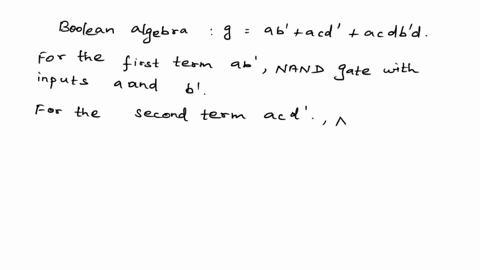 Boolean algebra : g = ab' + acd' + acdb'd.
For the first term ab', NAND gate with
inputs a and b'.
For the second term acd'.,